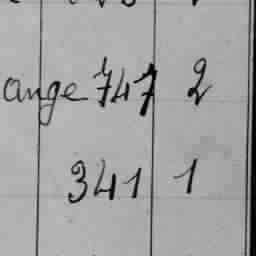 ange 747 2
341 1